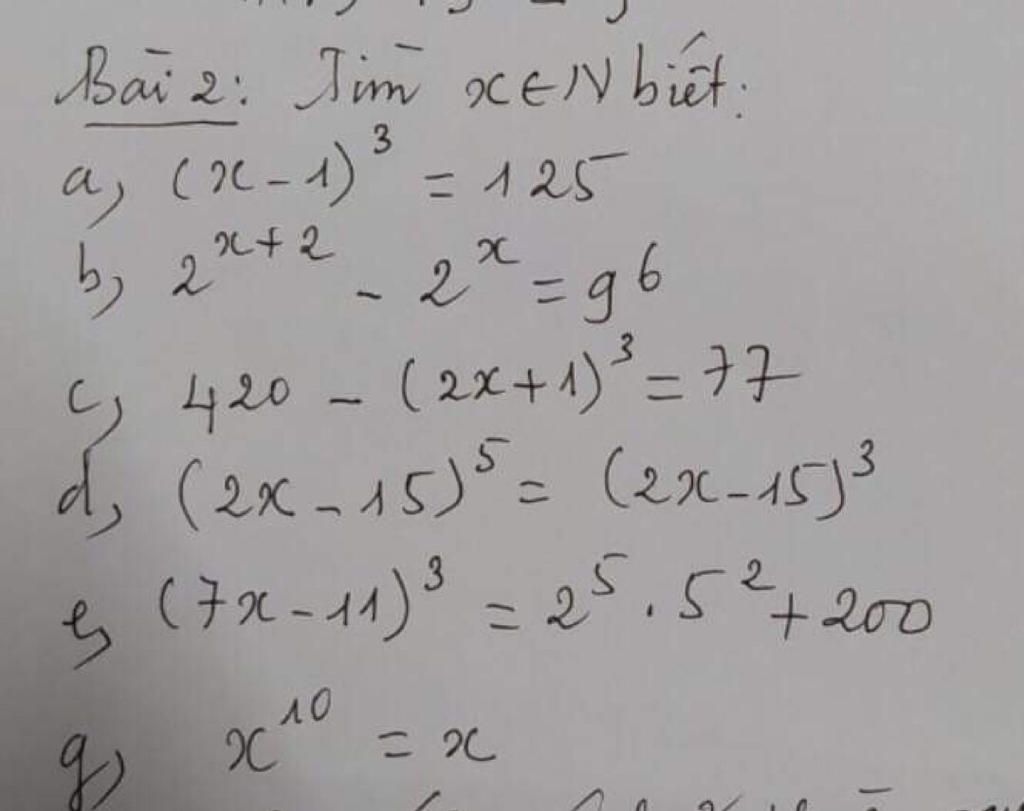 Bài 2: Tìm x ∈ N biết:
a, (x - 1)³ = 125
b, 2ˣ⁺² - 2ˣ = 96
c, 420 - (2x + 1)³ = 77
d, (2x - 15)⁵ = (2x - 15)³
e, (7x - 11)³ = 2⁵ . 5² + 200
g, x¹⁰ = x